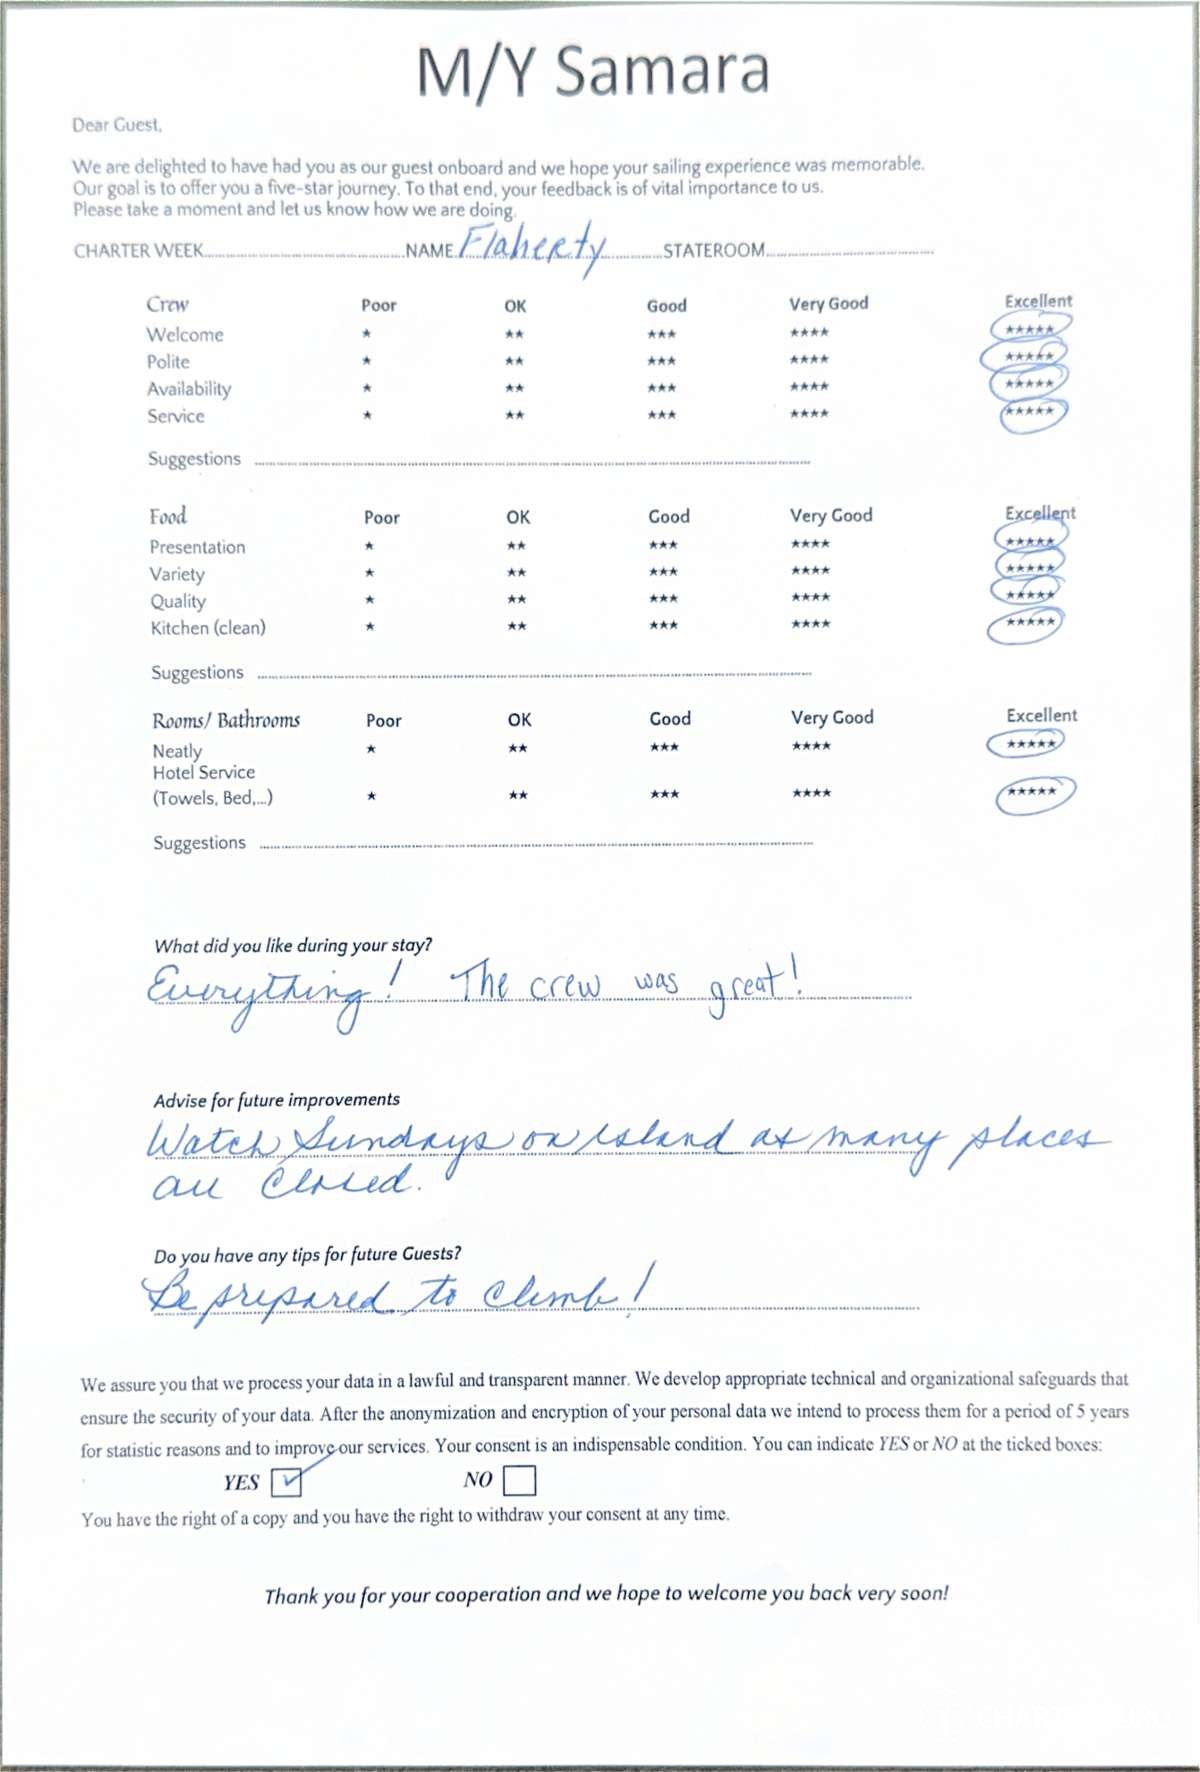 M/Y Samara
Dear Guest,
We are delighted to have had you as our guest onboard and we hope your sailing experience was memorable.
Our goal is to offer you a five-star journey. To that end, your feedback is of vital importance to us.
Please take a moment and let us know how we are doing.
CHARTER WEEK NAME Flaherty STATEROOM
Crew Poor OK Good Very Good Excellent
Welcome ★ ★★ ★★★ ★★★★ ★★★★★
Polite ★ ★★ ★★★ ★★★★ ★★★★★
Availability ★ ★★ ★★★ ★★★★ ★★★★★
Service ★ ★★ ★★★ ★★★★ ★★★★★
Suggestions
Food Poor OK Good Very Good Excellent
Presentation ★ ★★ ★★★ ★★★★ ★★★★★
Variety ★ ★★ ★★★ ★★★★ ★★★★★
Quality ★ ★★ ★★★ ★★★★ ★★★★★
Kitchen (clean) ★ ★★ ★★★ ★★★★ ★★★★★
Suggestions
Rooms/ Bathrooms Poor OK Good Very Good Excellent
Neatly ★ ★★ ★★★ ★★★★ ★★★★★
Hotel Service
(Towels, Bed,...) ★ ★★ ★★★ ★★★★ ★★★★★
Suggestions
What did you like during your stay?
Everything! The crew was great!
Advise for future improvements
Watch Sundays on island as many places
are closed.
Do you have any tips for future Guests?
Be prepared to climb!
We assure you that we process your data in a lawful and transparent manner. We develop appropriate technical and organizational safeguards that
ensure the security of your data. After the anonymization and encryption of your personal data we intend to process them for a period of 5 years
for statistic reasons and to improve our services. Your consent is an indispensable condition. You can indicate YES or NO at the ticked boxes:
YES ☑ NO ☐
You have the right of a copy and you have the right to withdraw your consent at any time.
Thank you for your cooperation and we hope to welcome you back very soon!